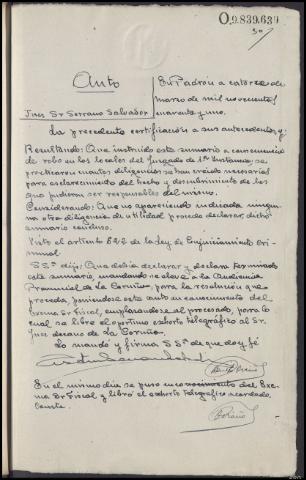 0,9.839.639
30
Auto
En Padrón a catorce de
marzo de mil novecientos
Juez Sr Serrano Salvador
cuarenta y uno.
La precedente certificación a sus antecedentes y
Resultando: Que instruido este sumario a consecuencia
de robo en los locales del Juzgado de 1ª Instancia, se
practicaron cuantas diligencias se han creido necesarias
para esclarecimiento del hecho y descubrimiento de los
que pudieran ser responsables del mismo.
Considerando: Que no apareciendo indicada ninguna
otra diligencia de utilidad procede declarar dicho
sumario concluso.
Visto el artículo 622 de la ley de Enjuiciamiento Cri-
minal
SSª dijo: Que debía declarar y declara terminado
este sumario, mandando se eleve a la Audiencia
Provincial de La Coruña, para la resolución que
proceda, poniéndose este auto en conocimiento del
Excmo Sr Fiscal, emplazándose al procesado, para lo
cual se libre el oportuno exhorto telegráfico al Sr.
Juez decano de La Coruña.
Lo mandó y firma SSª de que doy fé
En el mismo día se puso en conocimiento del Exc-
mo Sr Fiscal y libró el exhorto telegráfico acordado.
Conste.